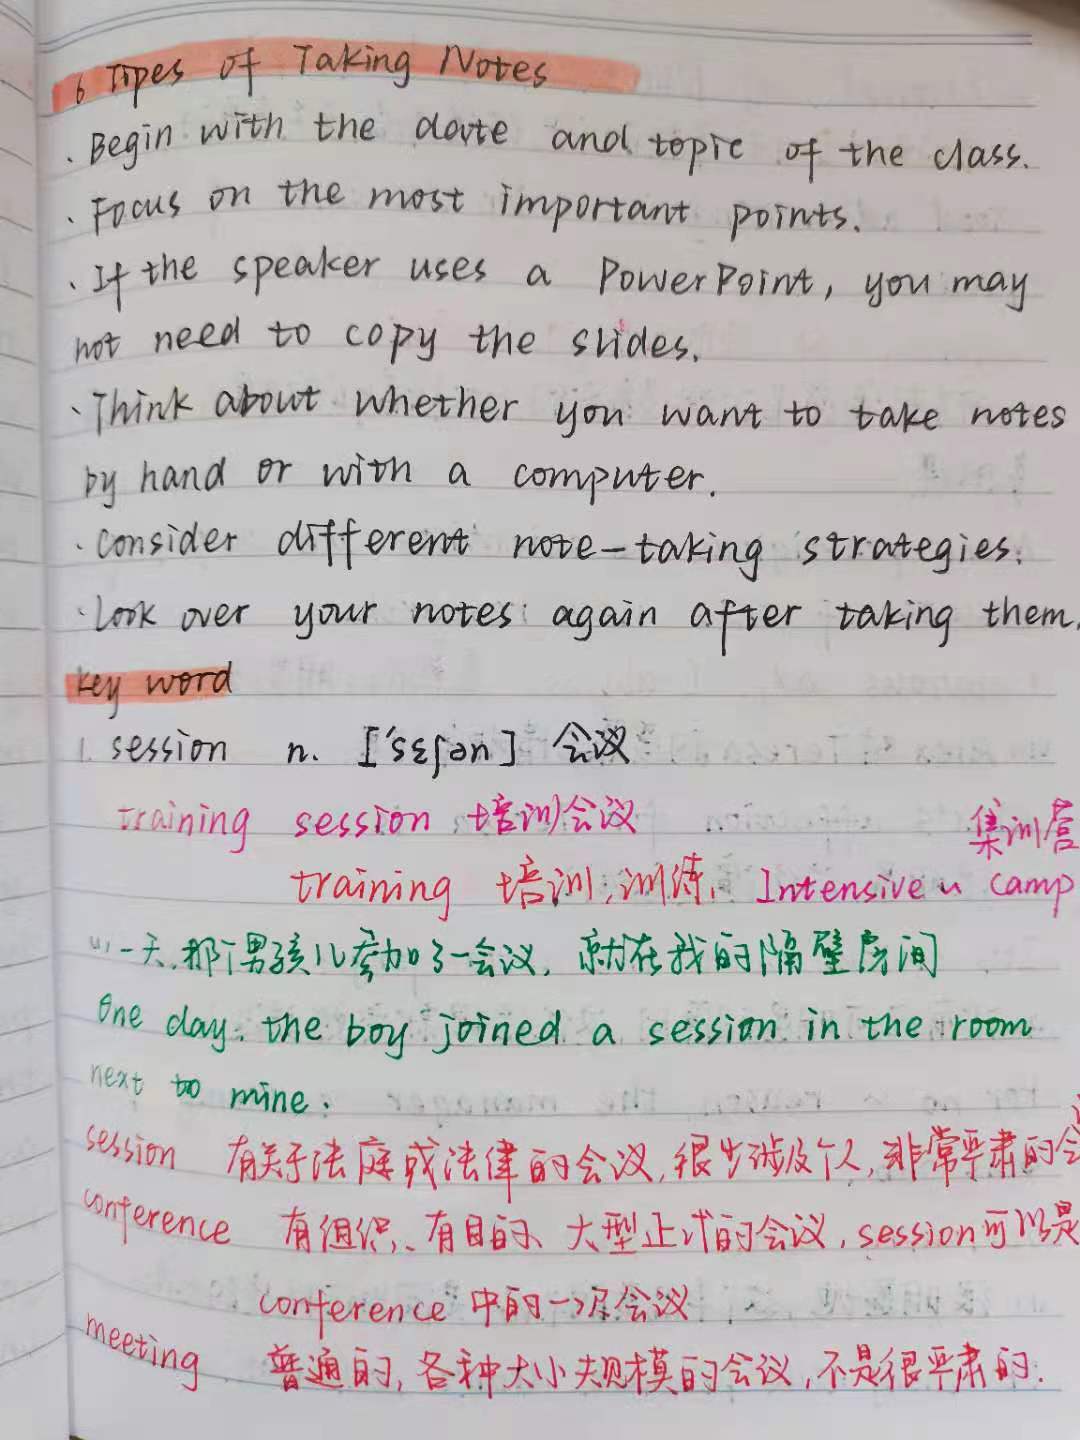 6 Tipes of Taking Notes
· Begin with the date and topic of the class.
· Focus on the most important points.
· If the speaker uses a PowerPoint, you may
not need to copy the slides.
· Think about whether you want to take notes
by hand or with a computer.
· Consider different note-taking strategies.
· Look over your notes again after taking them.
key word
1. session n. ['sɛʃən] 会议
training session 培训会议 集训营
training 培训,训练. Intensive camp
一天,那个男孩儿参加了一会议,就在我的隔壁房间
One day. the boy joined a session in the room
next to mine.
session 有关于法庭或法律的会议,很少涉及个人,非常严肃的会
conference 有组织、有目的、大型正式的会议,session可以是
conference 中的一次会议
meeting 普通的,各种大小规模的会议,不是很严肃的.